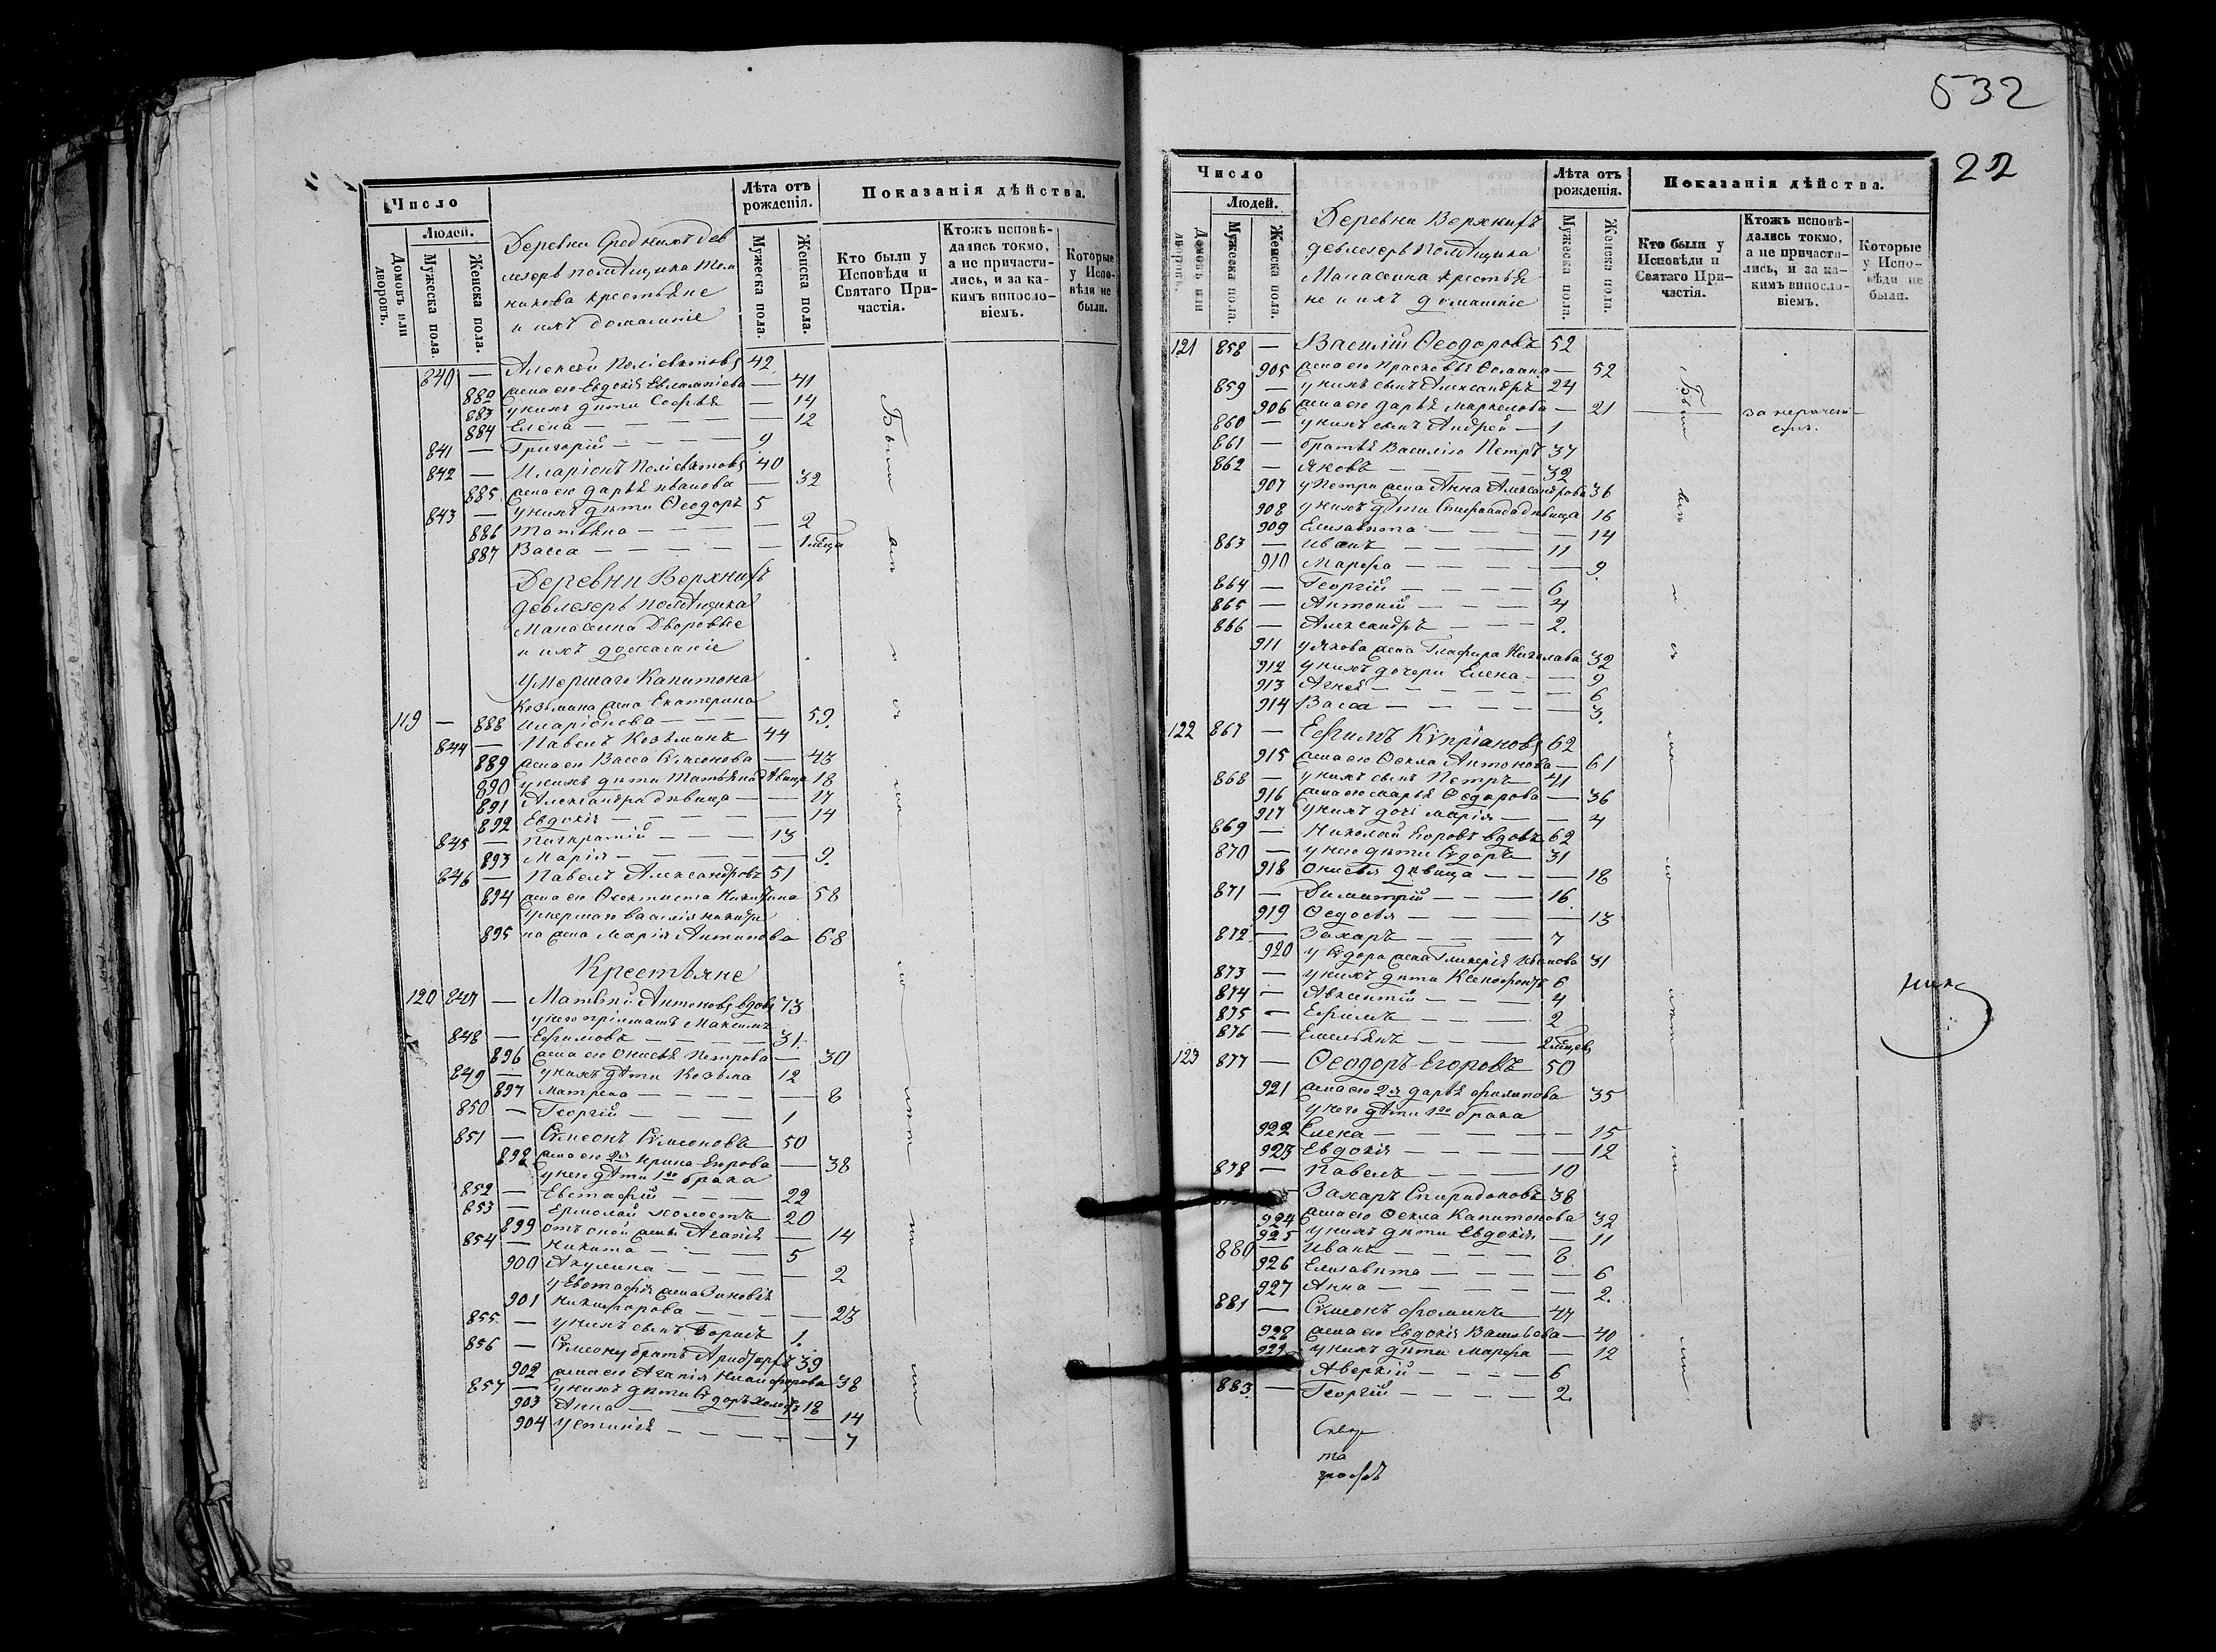 532
22
Число
Людей.
Домовъ или дворовъ.
Мужеска пола.
Женска пола.
Деревни Среднихъ Дев
лезерь помѣщика Тел
никова крестьяне
и ихъ домашніе
Лѣта отъ рожденія.
Мужеска пола.
Женска пола.
Показанія дѣйства.
Кто были у Исповѣди и Святаго Причастія.
Ктожъ исповѣдались токмо, а не причастились, и за какимъ винословіемъ.
Которые у Исповѣди не были.
840 — Алексѣй Поліевктовъ 42
882 жена его Евдокія Евлампіева — 41
883 у нихъ дѣти Софья — 14
884 Елена — 12
841 — Григорій — 9
842 — Иларіонъ Поліевктовъ 40
885 жена его Дарья Иванова — 32
843 — у нихъ дѣти Ѳеодоръ 5
886 Татьяна — 2
887 Васса — 1 мѣсца
Деревни Верхнихъ
девлезерь помѣщика
Манасеина Дворовые
и ихъ домашніе
умершаго Капитона
Козьмина жена Екатерина
119 — 888 Иларіонова — 59.
844 — Павелъ Козьминъ 44
889 жена его Васса Сѵмеонова — 43
890 у нихъ дѣти Татьяна дѣвица 18
891 Александра дѣвица — 17
892 Евдокія — 14
845 — Панкратій — 13
893 Марія — 9.
846 — Павелъ Александровъ 51
894 жена его Ѳеоктиста Никитина 58
умершаго Василія Никити
895 на жена Марія Антипова 68
Крестьяне
120 847 — Матвѣй Антоновъ вдовъ 73
у него пріемышъ Максимъ
848 — Ефимовъ — 31.
896 жена его Онисья Петрова — 30
849 — у нихъ дѣти Козьма 12
897 Матрена — 8
850 — Георгій — 1
851 — Сѵмеонъ Сѵмеоновъ 50
898 жена его 2я Ирина Егорова — 38
у него дѣти 1го брака
852 — Евстафій — 22
853 — Ермолай холостъ 20
899 отъ сной жены Агапія — 14
854 — Никита — 5
900 Акулина — 2
у Евстафія жена Зиновія
901 Никифорова — 23
855. — у нихъ сынъ Борисъ 1.
856 — Сѵмеону братъ Аристархъ 39
902 жена его Агапія Никифорова 38
857 — у нихъ дѣти Сѵдоръ холостъ 18
903 Анна — 14
904 Устинія — 7
Были
Число
Людей.
Домовъ или дворовъ.
Мужеска пола.
Женска пола.
Деревни Верхнихъ
девлезерь помѣщика
Манасеина крестья
не и ихъ домашніе
Лѣта отъ рожденія.
Мужеска пола.
Женска пола.
Показанія дѣйства.
Кто были у Исповѣди и Святаго Причастія.
Ктожъ исповѣдались токмо, а не причастились, и за какимъ винословіемъ.
Которые у Исповѣди не были.
121 858 — Василій Ѳеодоровъ 52
905 жена его Прасковья Ѳомина — 52
859 — у нихъ сынъ Александръ 24
906 жена его Дарья Маркелова — 21
за нерачені
емъ.
860 — у нихъ сынъ Андрей — 1
861 — братья Василію Петръ 37
862 — Яковъ — 32
907 у Петра жена Анна Александрова 36
908 у нихъ дѣти Степанида дѣвица 16
909 Елизавета — 14
863 — Иванъ — 11
910 Марфа — 9.
864 — Георгій — 6
865 — Антоній — 4
866 — Александръ — 2.
911 у Якова жена Глафира Николаева 32
912 у нихъ дочери Елена — 9
913 Агнія — 6
914 Васса — 3.
122 867 — Ефимъ Кѵпріановъ 62
915 жена его Ѳекла Антонова — 61
868 — у нихъ сынъ Петръ 41
916 жена его Марья Ѳедорова — 36
917 у нихъ дочь Марія — 4
869 — Николай Егоровъ вдовъ 62
870 — у него дѣти Сѵдоръ 31
918 Онисья дѣвица — 18
871 — Димитрій — 16.
919 Ѳедосья — 13
872 — Захаръ — 7
920 у Сѵдора жена Гликерія Иванова 31
873 — у нихъ дѣти Ксенофонтъ 6
874 — Авксентій — 4
875 — Ефимъ — 2
876 — Емельянъ — 2 мѣсцев
123 877 — Ѳеодоръ Егоровъ 50
921 жена его 2я Дарья Филипова 35
у него дѣти 1го брака
922 Елена — 15
923 Евдокія — 12
878 — Павелъ — 10
— Захаръ Спиридоновъ 38
924 жена его Ѳекла Капитонова 32
925 у нихъ дѣти Евдокія — 11
880 — Иванъ — 8
926 Елизавета — 6
927 Анна — 2.
881 — Сѵмеонъ Фоминъ 47
928 жена его Евдокія Васильева — 40
929 у нихъ дѣти Марфа — 12
Аверкій — 6
883. — Георгій — 2.
Были